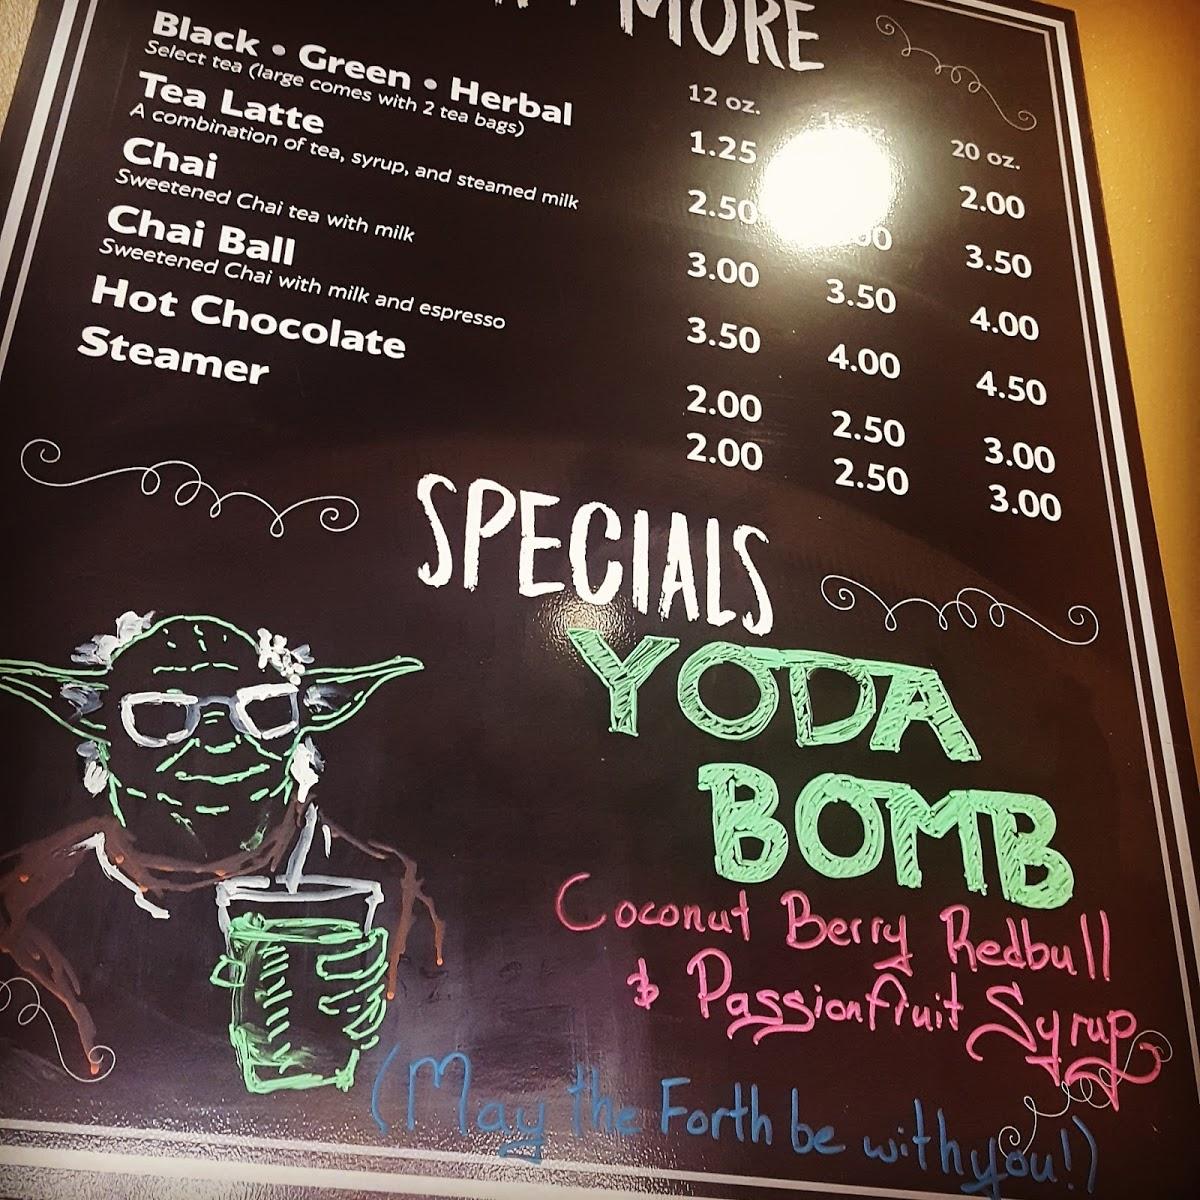 MORE
12 oz. 20 oz.
Black • Green • Herbal 1.25 2.00
Select tea (large comes with 2 tea bags)
Tea Latte 2.50 3.50
A combination of tea, syrup, and steamed milk
Chai 3.00 3.50 4.00
Sweetened Chai tea with milk
Chai Ball 3.50 4.00 4.50
Sweetened Chai with milk and espresso
Hot Chocolate 2.00 2.50 3.00
Steamer 2.00 2.50 3.00
SPECIALS
YODA
BOMB
Coconut Berry Redbull
& Passionfruit Syrup
(May the Forth be with you!)